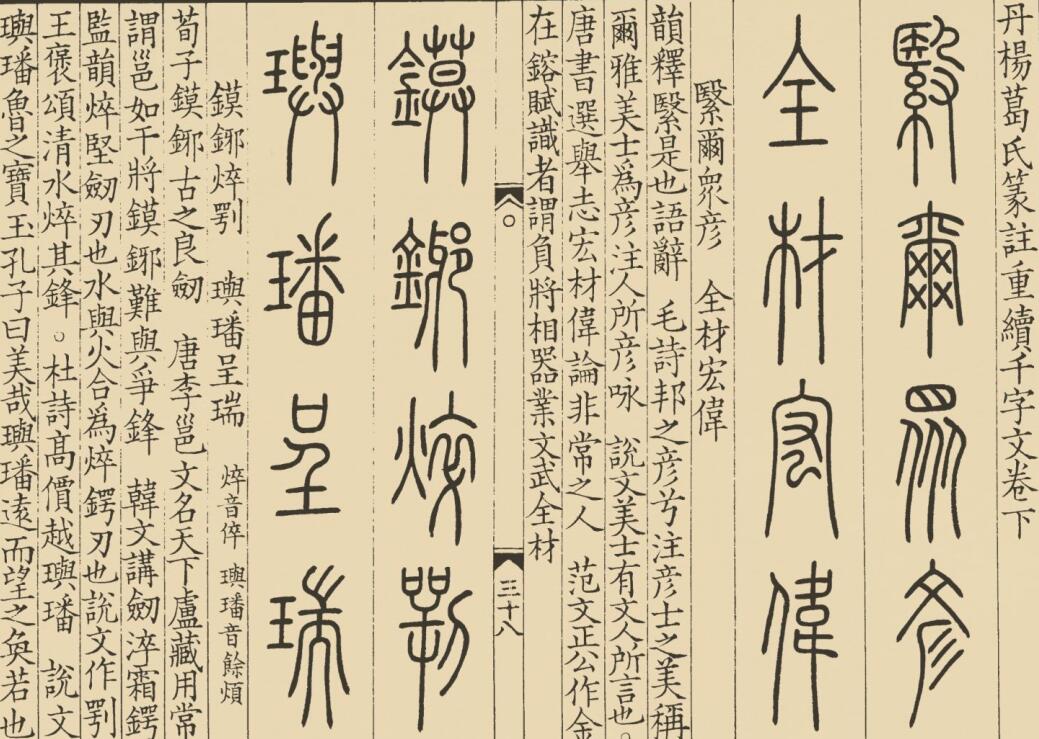 丹楊葛氏篆註重續千字文卷下
繄爾眾彦
全材宏偉
繄爾眾彦　全材宏偉
韻釋繄是也語辭　毛詩邦之彦兮注彦士之美稱
爾雅美士爲彦注人所彦咏　說文美士有文人所言也。
唐書選舉志宏材偉論非常之人　范文正公作金
在鎔賦識者謂負將相器業文武全材
三十八
鏌鎁焠㓵
璵璠呈瑞
鏌鎁焠㓵　璵璠呈瑞　焠音倅　璵璠音餘煩
荀子鏌鎁古之良劒　唐李邕文名天下盧藏用常
謂邕如干將鏌鎁難與爭鋒　韓文講劒淬霜鍔
監韻焠堅劒刃也水與火合爲焠鍔刃也說文作㓵
王褒頌清水焠其鋒。杜詩髙價越璵璠　說文
璵璠魯之寶玉孔子曰美哉璵璠逺而望之奐若也